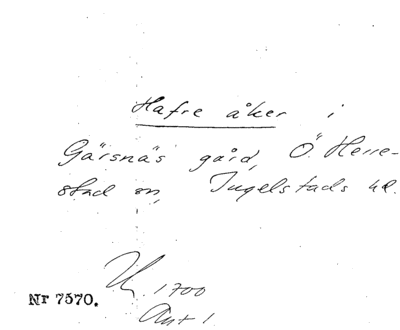 Hafre åker i
Gärsnäs gård, Ö. Herre-
stad sn, Ingelstads hd.
1700
Nr 7570.
Ant 1